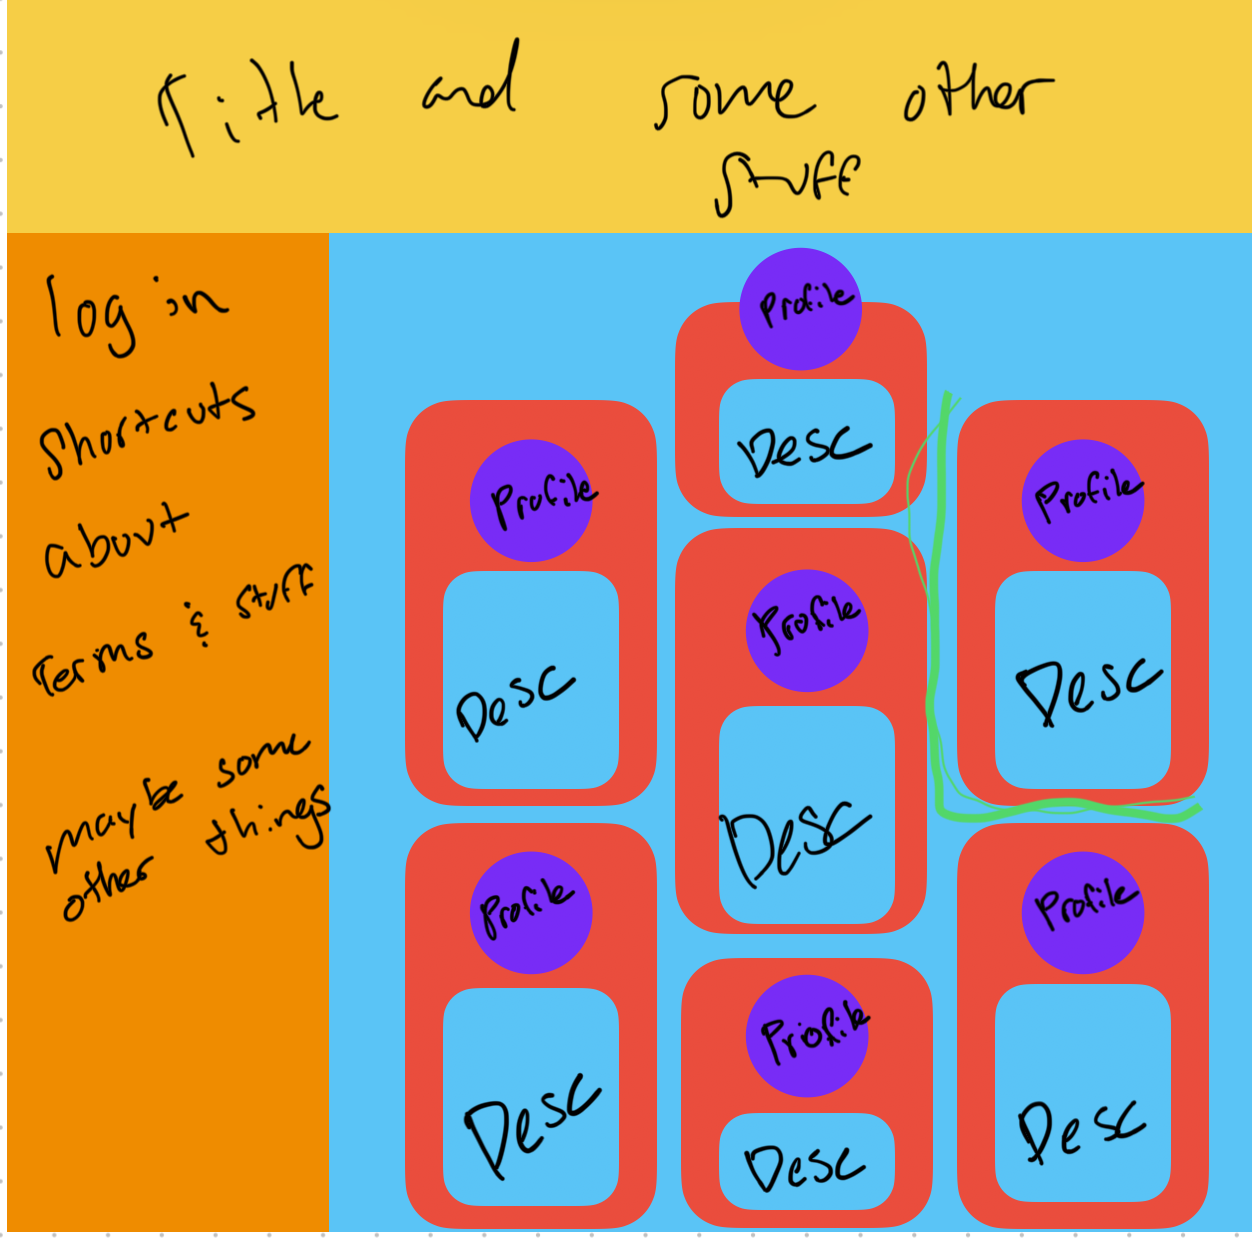 Title and some other
stuff
log in
shortcuts
about
Terms & stuff
maybe some
other things
Profile
Desc
Profile
Desc
Profile
Desc
Profile
Desc
Profile
Desc
Profile
Desc
Profile
Desc